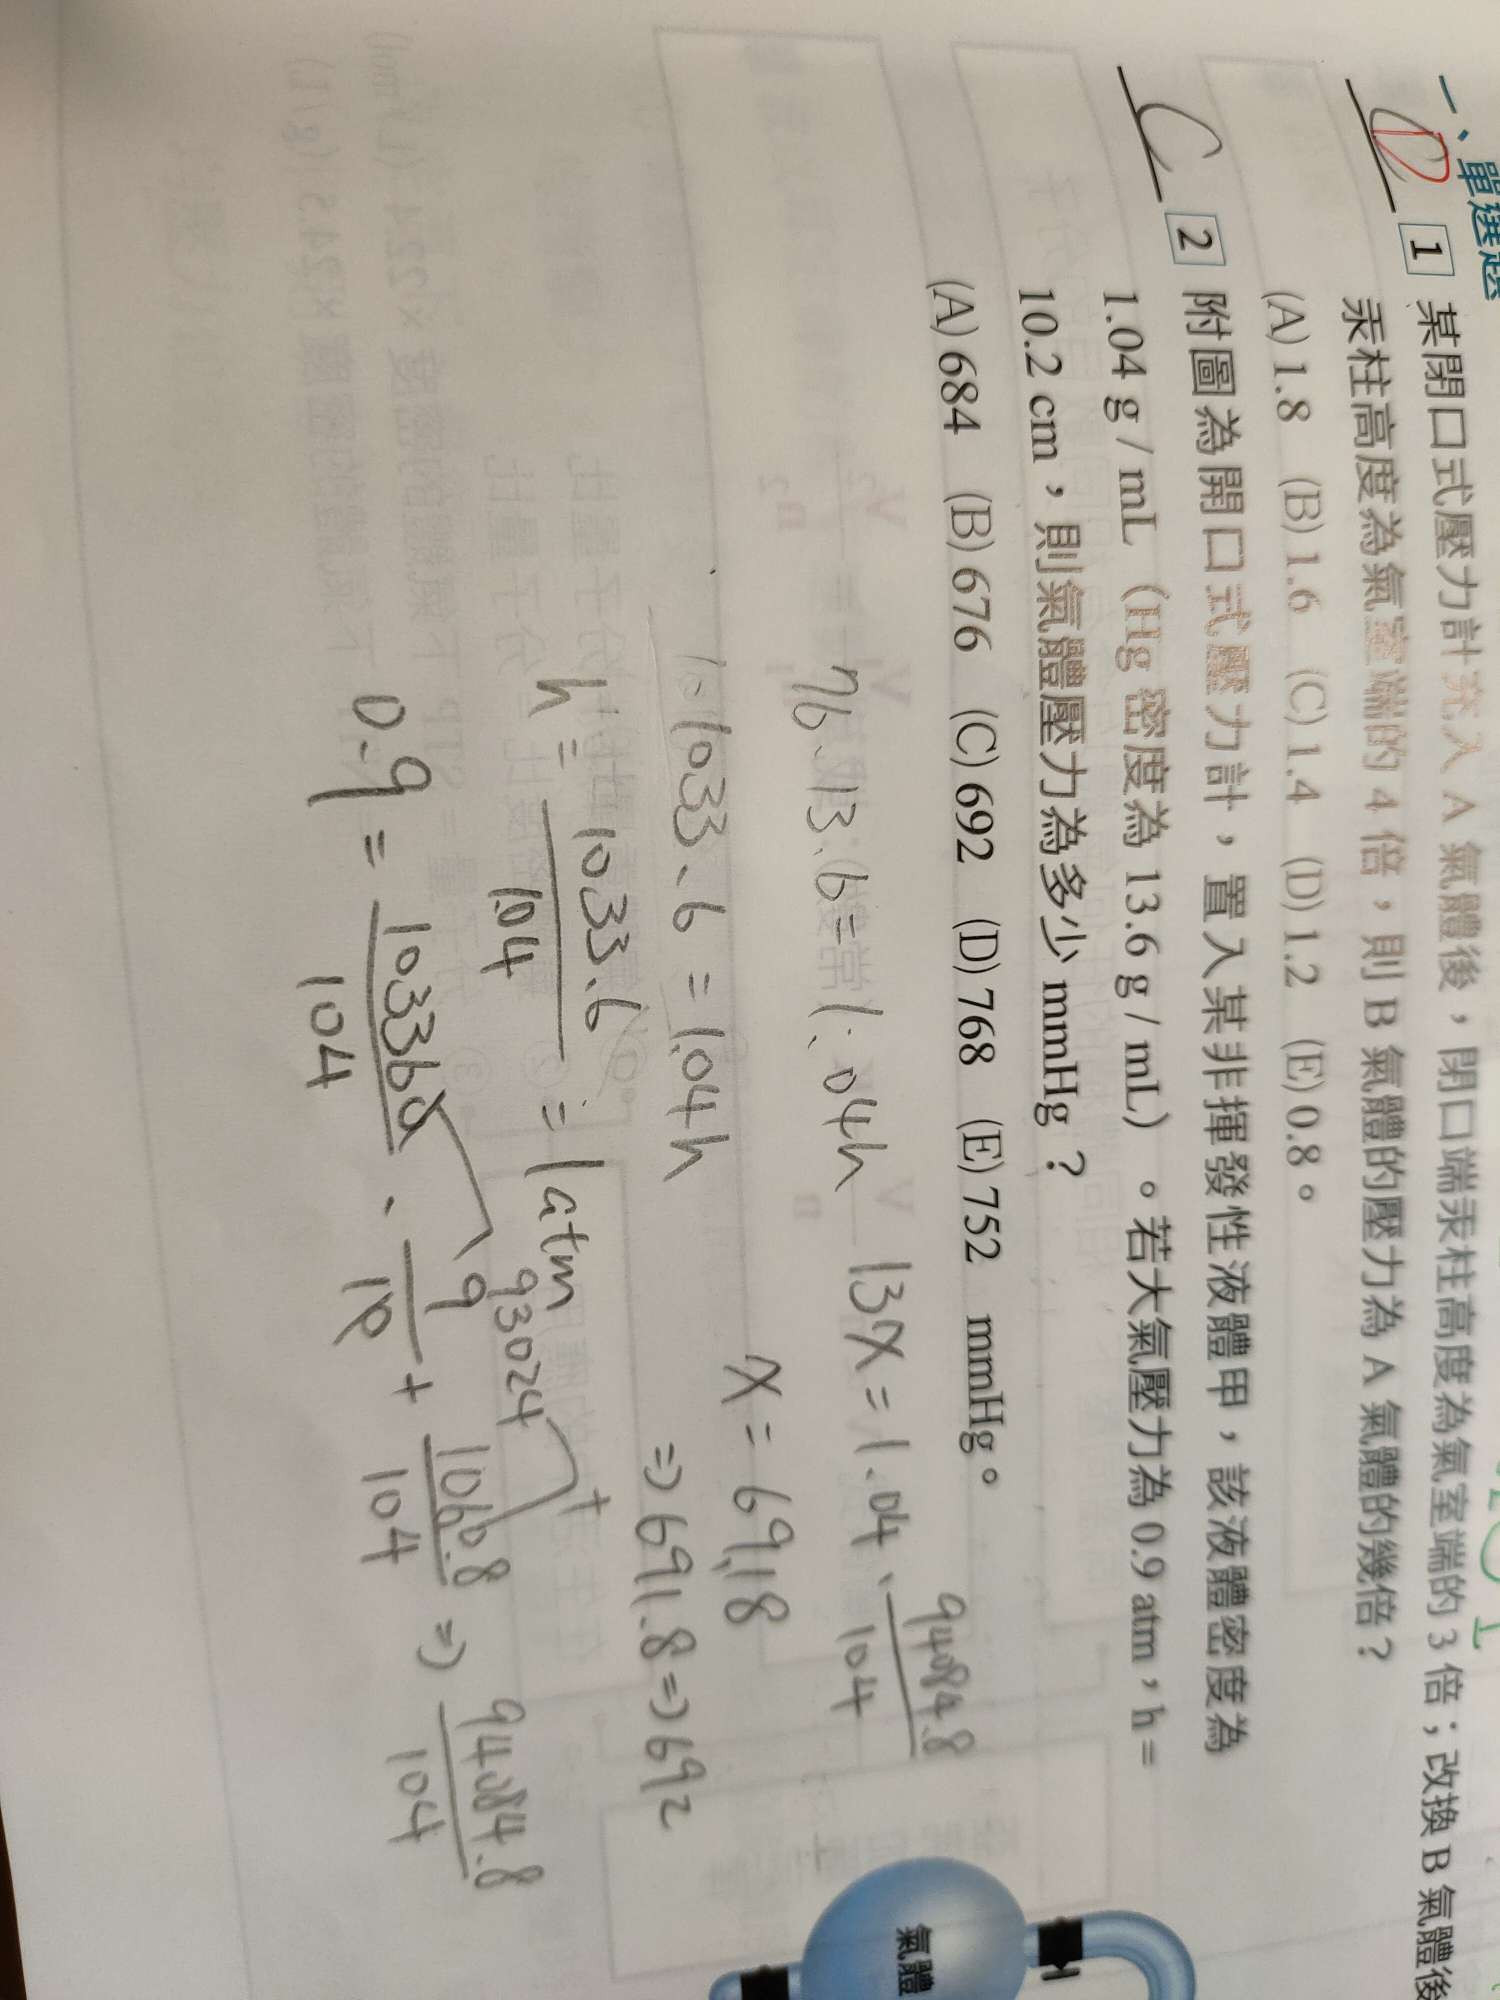 一、單選題
D 1 某閉口式壓力計充入 A 氣體後，閉口端汞柱高度為氣室端的 3 倍；改換 B 氣體後
汞柱高度為氣室端的 4 倍，則 B 氣體的壓力為 A 氣體的幾倍？
(A) 1.8 (B) 1.6 (C) 1.4 (D) 1.2 (E) 0.8。
C 2 附圖為開口式壓力計，置入某非揮發性液體甲，該液體密度為
1.04 g / mL（Hg 密度為 13.6 g / mL）。若大氣壓力為 0.9 atm，h =
10.2 cm，則氣體壓力為多少 mmHg？
(A) 684 (B) 676 (C) 692 (D) 768 (E) 752 mmHg。
氣體
76.13.6 = 1.04h
1033.6 = 1.04h
h = 1033.6 / 1.04 = 1atm
0.9 = 103360 / 104 · 9 / 10 + 1060.8 / 104 ⇒ 94084.8 / 104
93024 +
13X = 1.04 · 94084.8 / 104
X = 69.18
⇒ 691.8 ⇒ 692